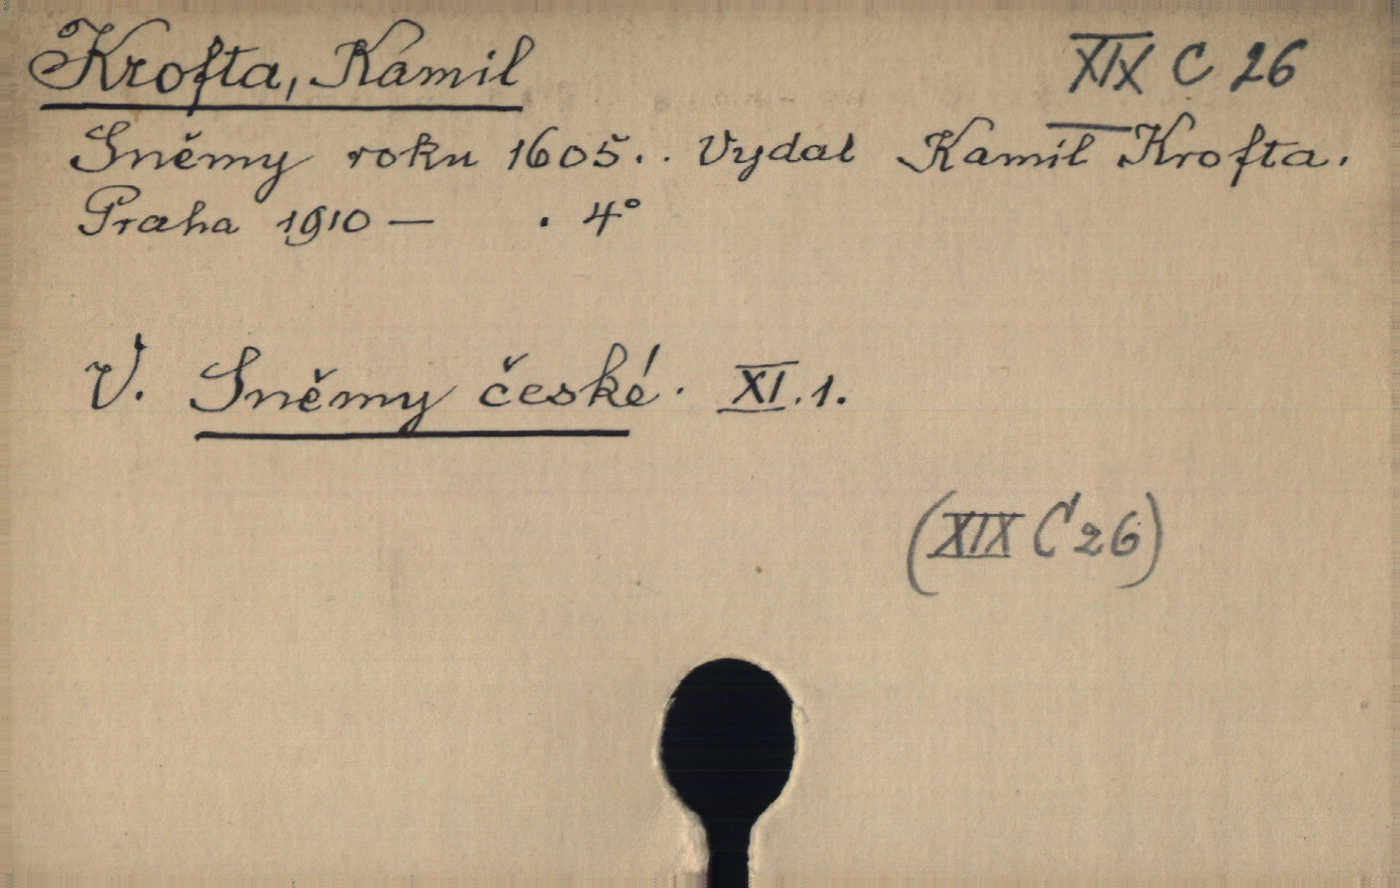 Krofta, Kamil XIX C 26
Sněmy roku 1605.. Vydal Kamil Krofta.
Praha 1910 — . 4°
V. Sněmy české. XI.1.
(XIX C 26)